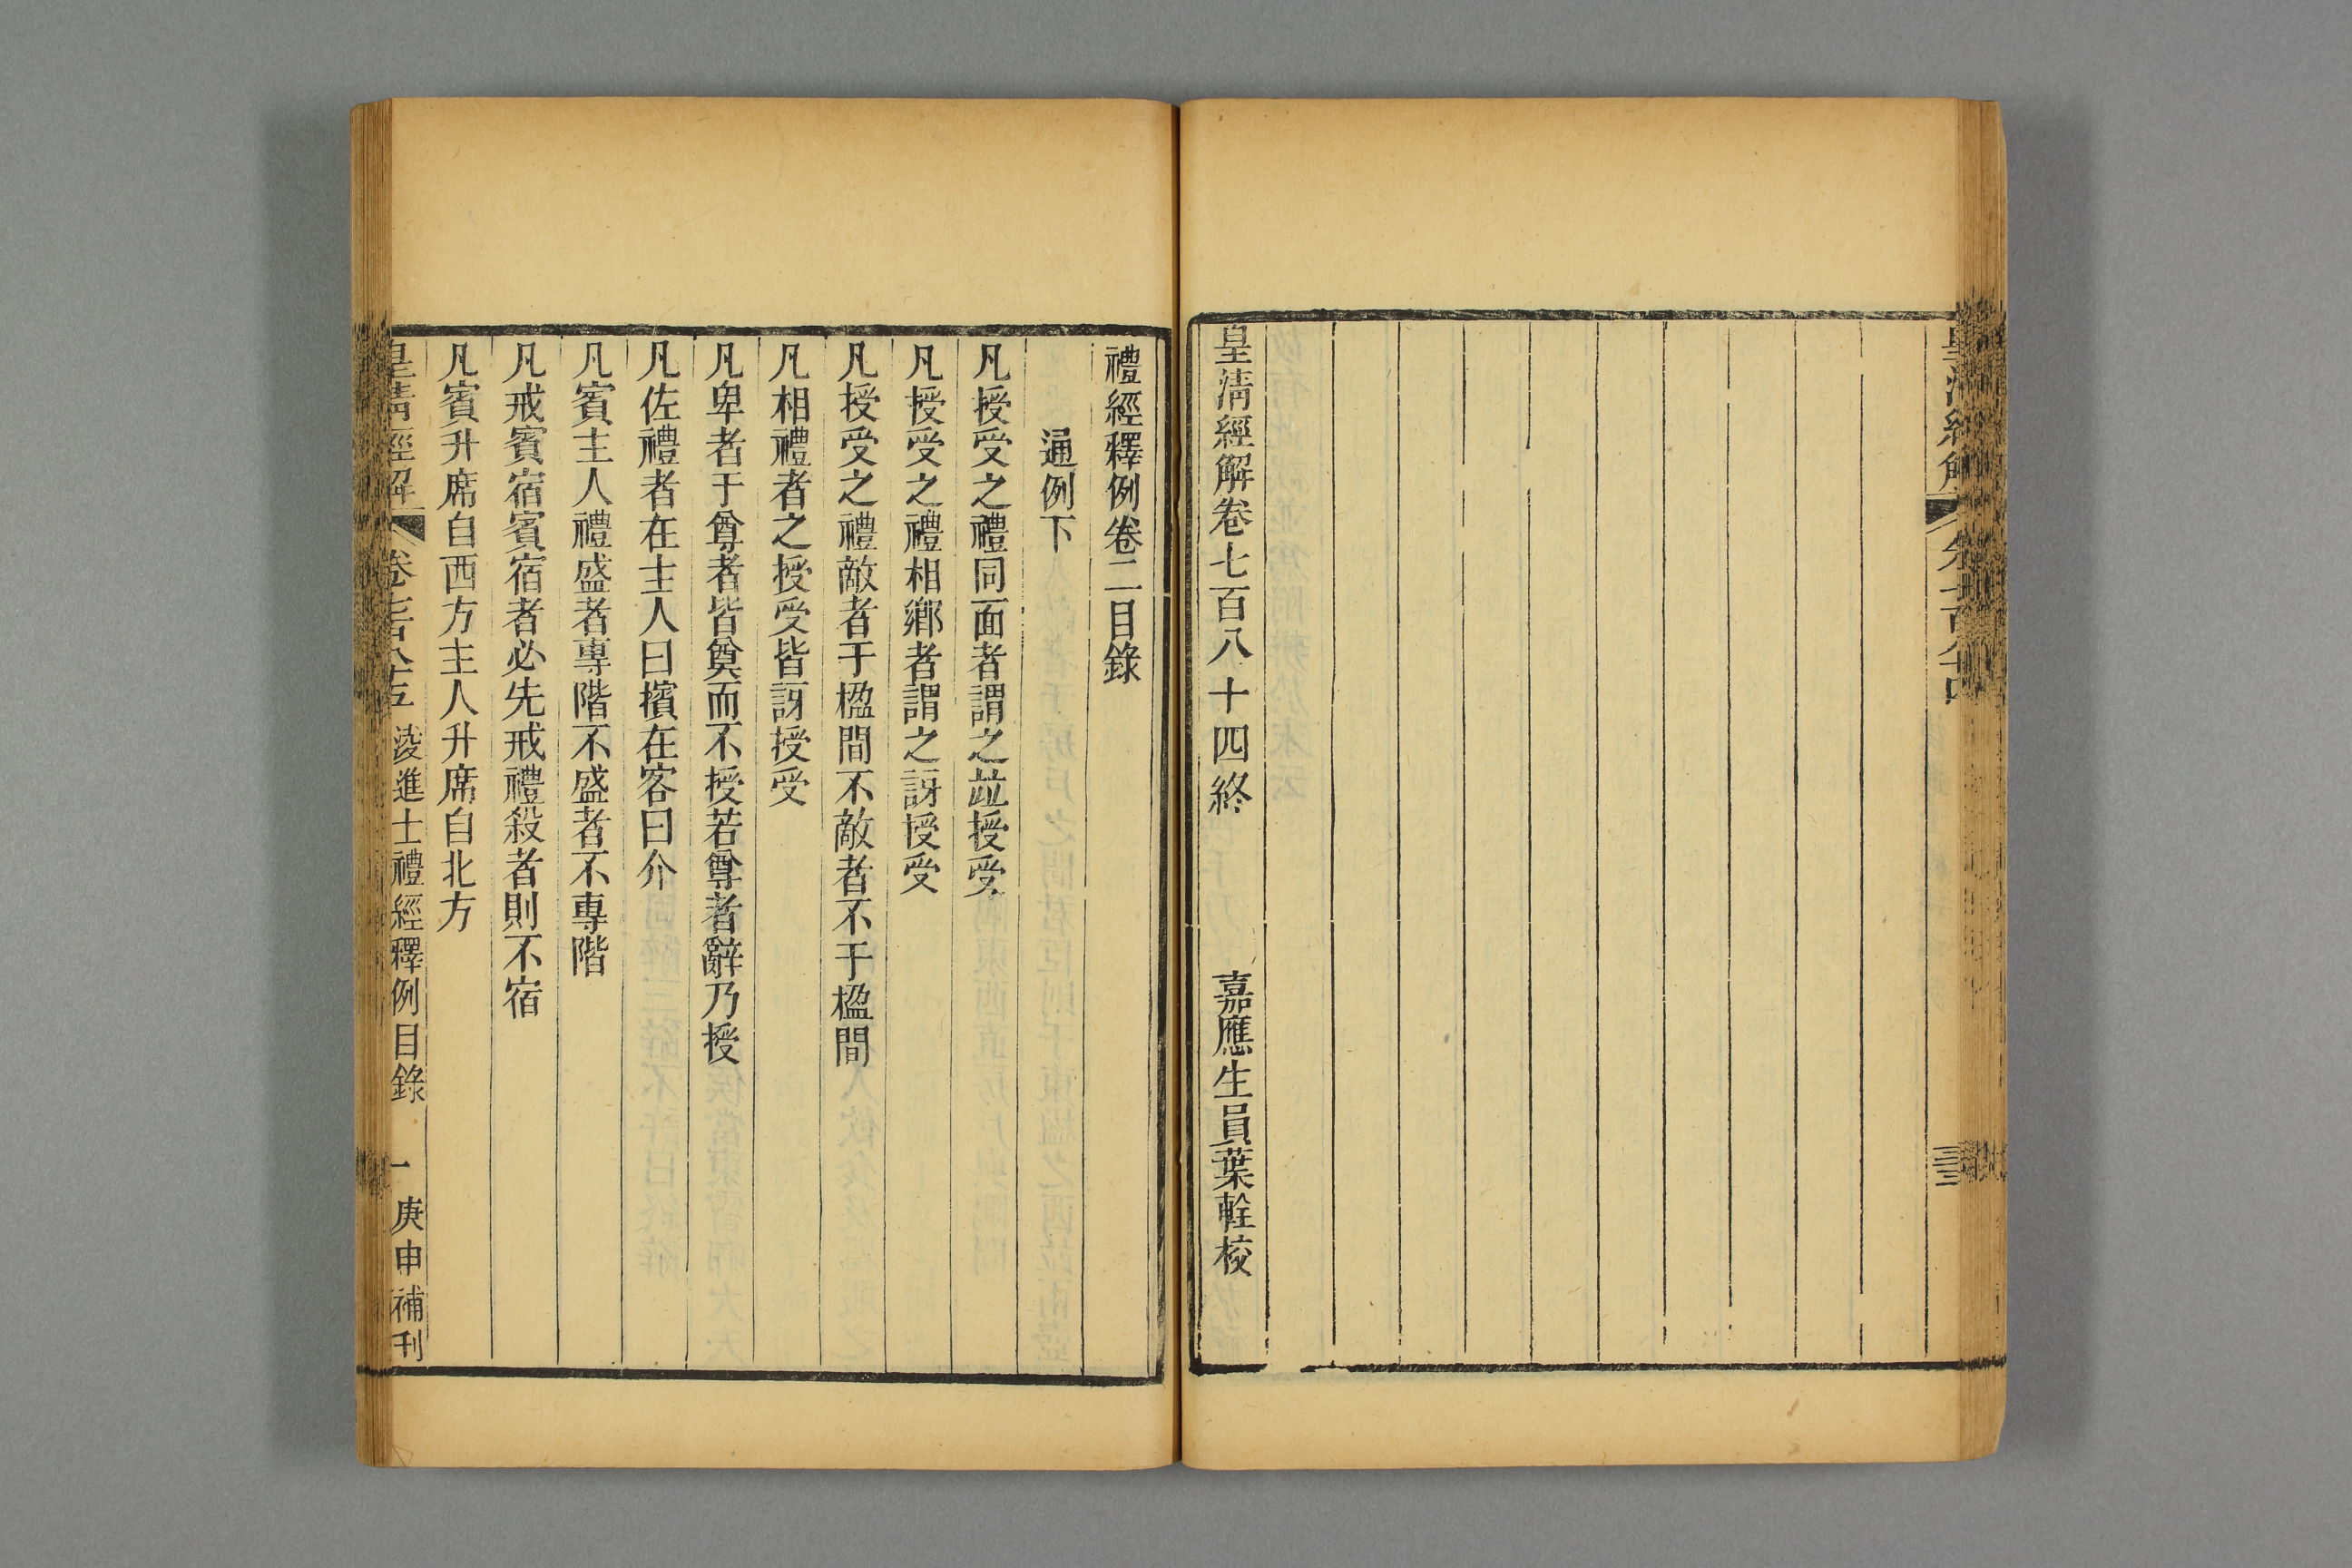 皇清經解
皇清經解卷七百八十四終 嘉應生員葉輊校
禮經釋例卷二目錄
通例下
凡授受之禮同面者謂之並授受
凡授受之禮相鄉者謂之訝授受
凡授受之禮敵者于楹間不敵者不于楹間
凡相禮者之授受皆訝授受
凡卑者于尊者皆奠而不授若尊者辭乃授
凡佐禮者在主人曰擯在客曰介
凡賓主人禮盛者專階不盛者不專階
凡戒賓宿賓宿者必先戒禮殺者則不宿
凡賓升席自西方主人升席自北方
皇清經解 卷七百八十五 淩進士禮經釋例目錄 一 庚申補刊